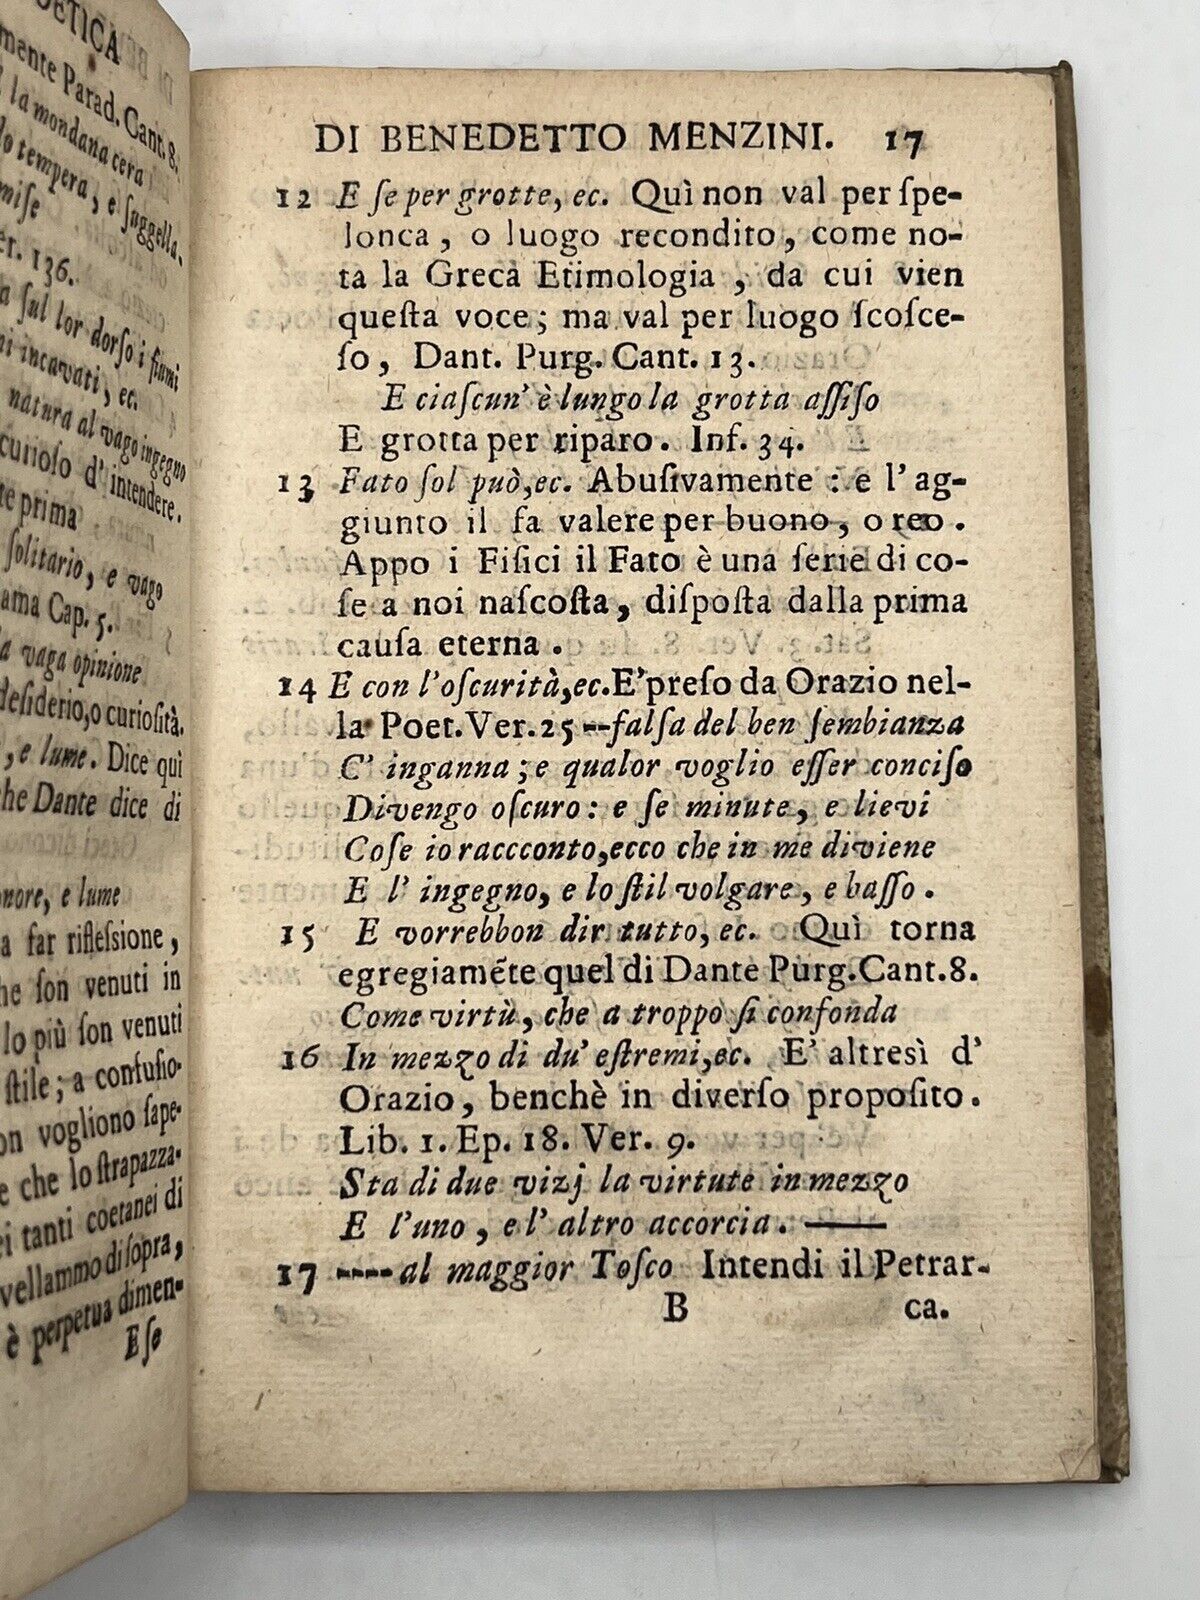 OETICA
mente Parad. Cant. 8.
la mondana cera
tempera, e ſuggella.
miſe
er. 136.
ſul lor dorſo i fiumi
incavati, ec.
natura al vago ingegno
curioſo d'intendere.
te prima
ſolitario, e vago
ama Cap. 5.
a vaga opinione
deſiderio, o curioſità.
, e lume. Dice quì
he Dante dice di
onore, e lume
a far rifleſsione,
he ſon venuti in
lo più ſon venuti
ſtile; a confuſio-
on vogliono ſape-
e che lo ſtrapazza-
ei tanti coetanei di
vellammo di ſopra,
è perpetua dimen-
E ſe
DI BENEDETTO MENZINI. 17
12 E ſe per grotte, ec. Quì non val per ſpe-
lonca, o luogo recondito, come no-
ta la Greca Etimologia, da cui vien
queſta voce; ma val per luogo ſcoſce-
ſo, Dant. Purg. Cant. 13.
E ciaſcun' è lungo la grotta aſſiſo
E grotta per riparo. Inf. 34.
13 Fato ſol può, ec. Abuſivamente: e l' ag-
giunto il fa valere per buono, o reo.
Appo i Fiſici il Fato è una ſerie di co-
ſe a noi naſcoſta, diſpoſta dalla prima
cauſa eterna.
14 E con l'oſcurità, ec. E' preſo da Orazio nel-
la Poet. Ver. 25 --falſa del ben ſembianza
C' inganna; e qualor voglio eſſer conciſo
Divengo oſcuro: e ſe minute, e lievi
Coſe io raccconto, ecco che in me diviene
E l' ingegno, e lo ſtil volgare, e baſſo.
15 E vorrebbon dir tutto, ec. Quì torna
egregiamẽte quel di Dante Purg. Cant. 8.
Come virtù, che a troppo ſi confonda
16 In mezzo di du' eſtremi, ec. E' altresì d'
Orazio, benchè in diverſo propoſito.
Lib. 1. Ep. 18. Ver. 9.
Sta di due vizj la virtute in mezzo
E l'uno, e l' altro accorcia. ———
17 ----al maggior Toſco Intendi il Petrar-
B ca.